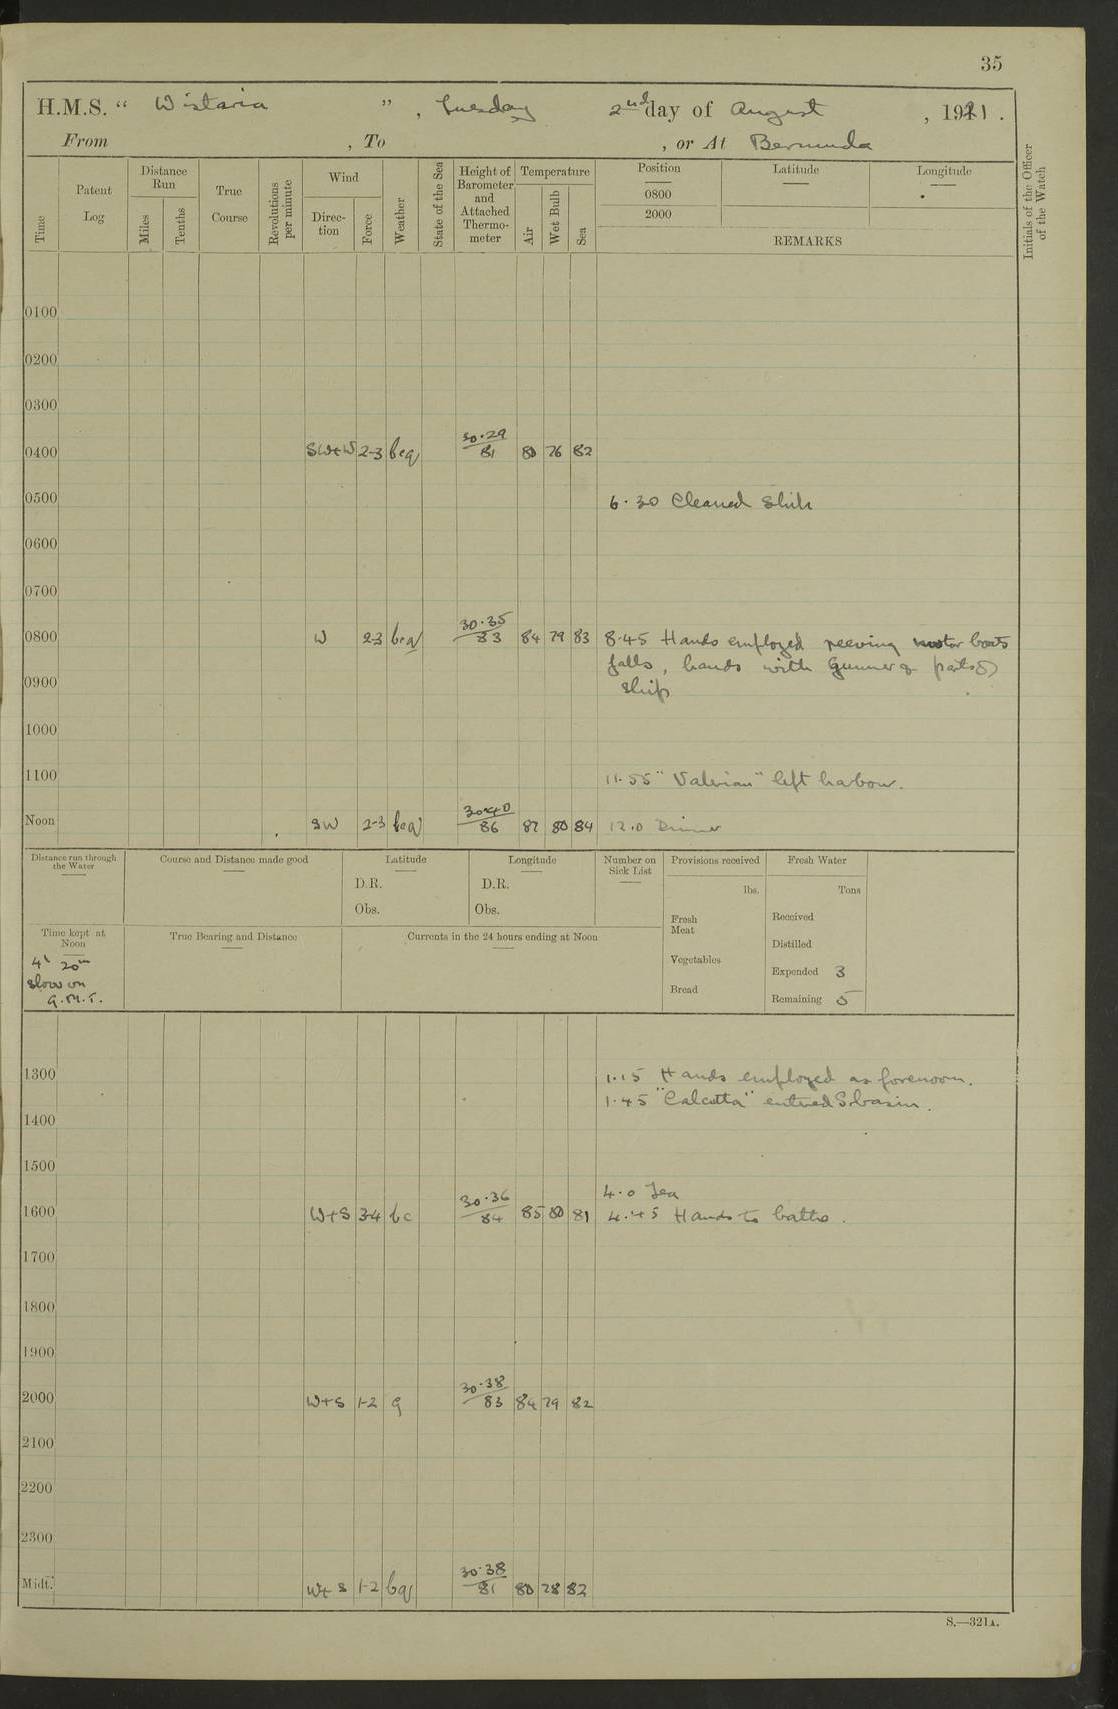 35
H.M.S. " Wistaria ", Tuesday 2nd day of August, 1921.
From , To , or At Bermuda
Time
Patent Log
Distance Run
Miles
Tenths
True Course
Revolutions per minute
Wind
Direction
Force
Weather
State of the Sea
Height of Barometer and Attached Thermometer
Temperature
Air
Wet Bulb
Sea
Position
0800
2000
Latitude
Longitude
REMARKS
Initials of the Officer of the Watch
0100
0200
0300
0400 SW+W 2-3 bcq 30.29 / 81 80 76 82
0500 6.30 Cleaned Ship
0600
0700
0800 W 2-3 bcq 30.35 / 83 84 79 83 8.45 Hands employed reeving motor boats
falls, hands with Gunner & parts of
0900 ship
1000
1100 11.55 "Valerian" left harbour.
Noon SW 2-3 bcq 30.40 / 86 87 80 84 12.0 Dinner
Distance run through the Water
Course and Distance made good
Latitude
D.R.
Obs.
Longitude
D.R.
Obs.
Number on Sick List
Provisions received
lbs.
Fresh Meat
Vegetables
Bread
Fresh Water
Tons
Received
Distilled
Expended 3
Remaining 5
Time kept at Noon
4h 20m
slow on
G.M.T.
True Bearing and Distance
Currents in the 24 hours ending at Noon
1300 1.15 Hands employed as forenoon.
1.45 "Calcutta" entered S. basin.
1400
1500
4.0 Tea
1600 W+S 3-4 bc 30.36 / 84 85 80 81 4.45 Hands to bathe.
1700
1800
1900
2000 W+S 1-2 q 30.38 / 83 84 79 82
2100
2200
2300
Midt. W+S 1-2 bq 30.38 / 81 80 78 82
S.—321A.